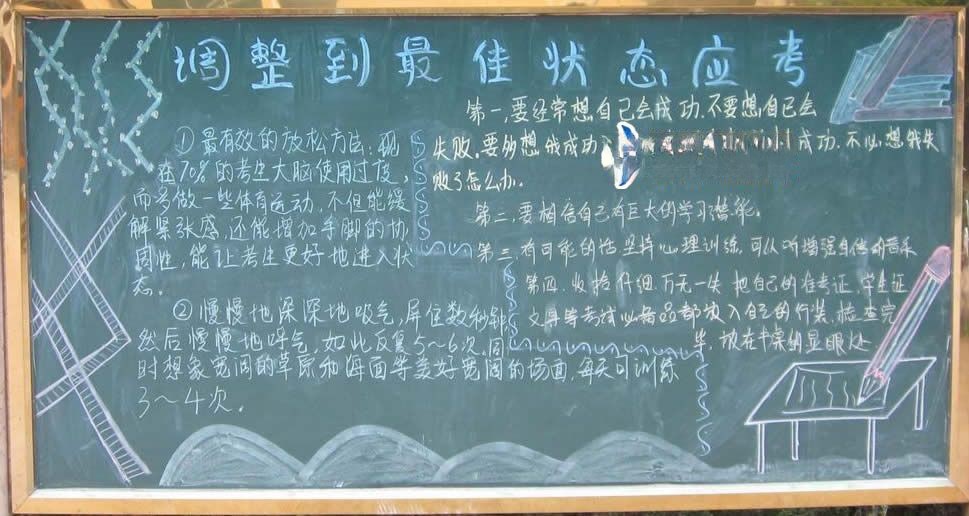 调整到最佳状态应考
①最有效的放松方法：现
在70%的考生大脑使用过度，
而多做一些体育运动，不但能缓
解紧张感，还能增加手脚的协
调性，能让考生更好地进入状
态。
②慢慢地深深地吸气，屏住数秒钟
然后慢慢地呼气，如此反复5～6次，同
时想象宽阔的草原和海面等美好宽阔的场面，每天可训练
3～4次。
第一，要经常想自己会成功，不要想自己会
失败，要多想我成功 成功，不必想我失
败了怎么办。
第二，要相信自己有巨大的学习潜能。
第三 有可能的话坚持心理训练，可以听增强自信的音乐
第四，收拾仔细，万无一失 把自己的准考证、学生证
文具等考试必备品都放入自己的行装，检查完
毕，放在书桌的显眼处